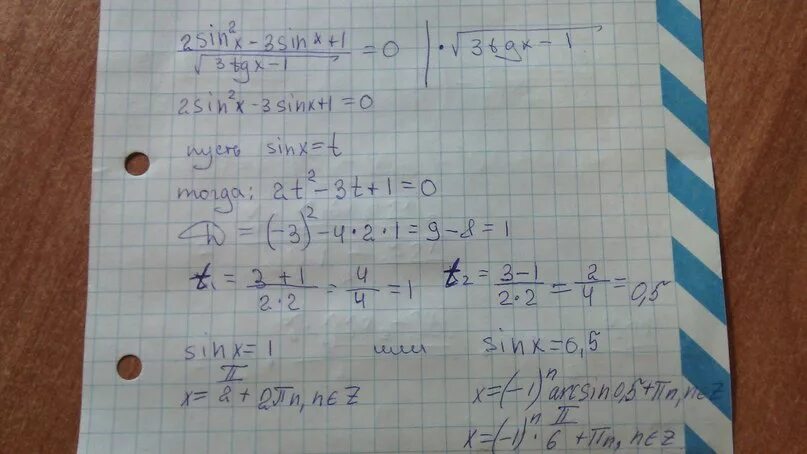 (2sin²x − 3sinx + 1) / √(3tgx − 1) = 0 | · √(3tgx − 1)
2sin²x − 3sinx + 1 = 0
пусть sinx = t
тогда: 2t² − 3t + 1 = 0
D = (−3)² − 4·2·1 = 9 − 8 = 1
t₁ = (3 + 1) / (2·2) = 4/4 = 1 t₂ = (3 − 1) / (2·2) = 2/4 = 0,5
sinx = 1 или sinx = 0,5
x = π/2 + 2πn, n∈Z x = (−1)ⁿ arcsin0,5 + πn, n∈Z
x = (−1)ⁿ · π/6 + πn, n∈Z